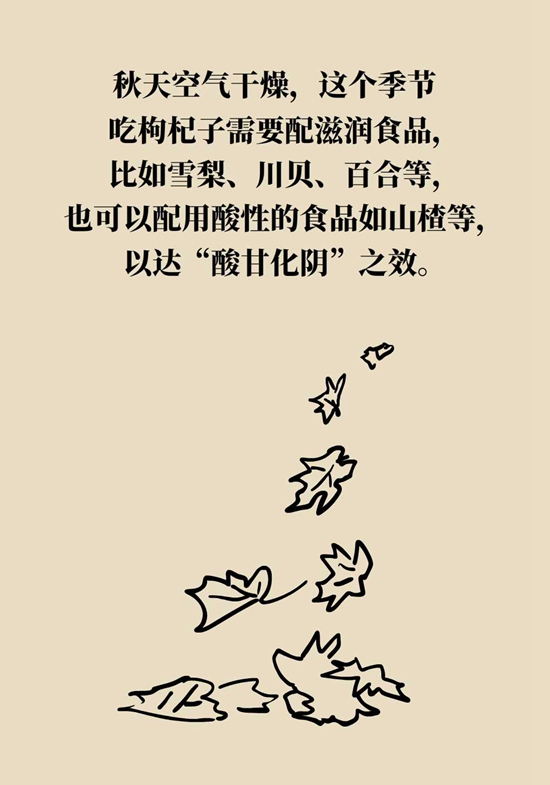 秋天空气干燥，这个季节
吃枸杞子需要配滋润食品，
比如雪梨、川贝、百合等，
也可以配用酸性的食品如山楂等，
以达“酸甘化阴”之效。